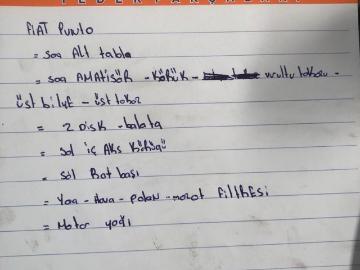 FIAT PUNTO
= sağ Alt tabla
= sağ AMATİSÖR - KÖRÜK -
üst bilye - üst takoz
= 2 DİSK - balata
= Sol iç AKS KÖRÜĞÜ
= sol Rot başı
= Yağ - Hava - polen - mazot FiltRESi
= Motor yağı